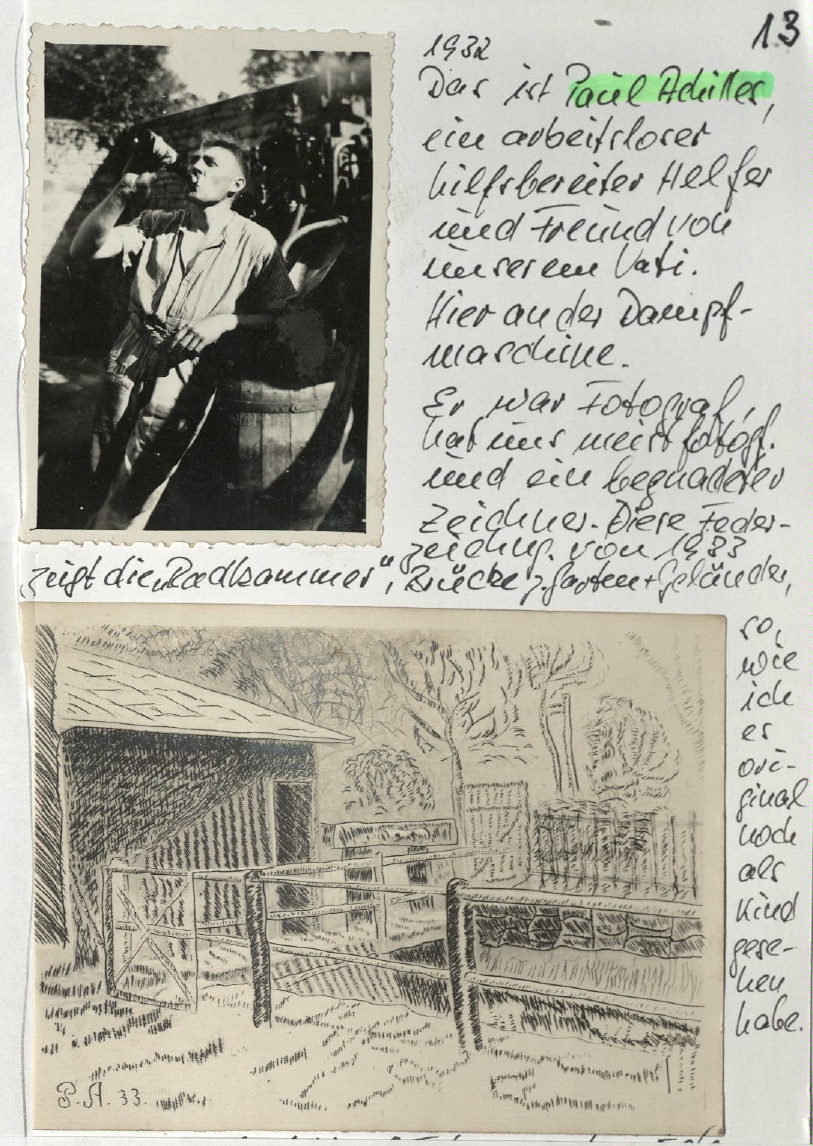 13
1932
Das ist Paul Achilles,
ein arbeitsloser
hilfsbereiter Helfer
und Freund von
unserem Vati.
Hier an der Dampf-
maschine.
Er war Fotograf,
hat uns meist fotogr.
und ein begnadeter
Zeichner. Diese Feder-
zeichng. von 1933
zeigt die "Radkammer", Brücke z. Garten + Geländer,
so,
wie
ich
es
ori-
ginal
noch
als
Kind
gese-
hen
habe.
P. A. 33.